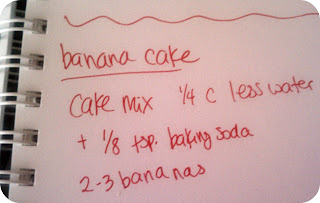 banana cake
Cake mix 1/4 c less water
+ 1/8 tsp. baking soda
2-3 bananas